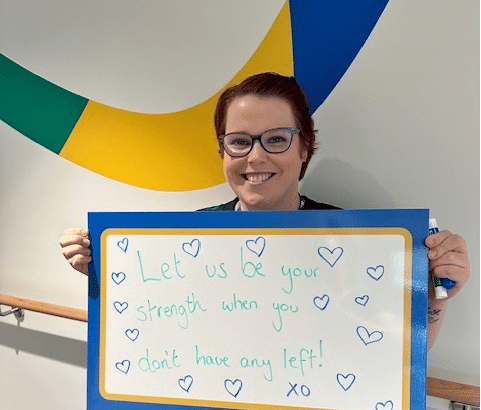 Let us be your
strength when you
don't have any left!
XO